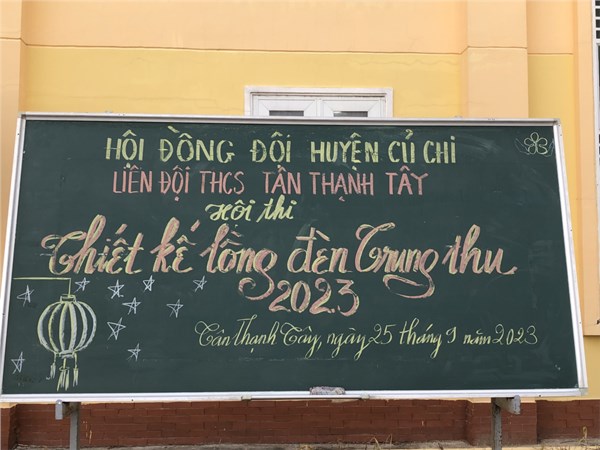 HỘI ĐỒNG ĐỘI HUYỆN CỦ CHI
LIÊN ĐỘI THCS TÂN THẠNH TÂY
Hội thi
Thiết kế lồng đèn Trung thu
2023
Tân Thạnh Tây, ngày 25 tháng 9 năm 2023